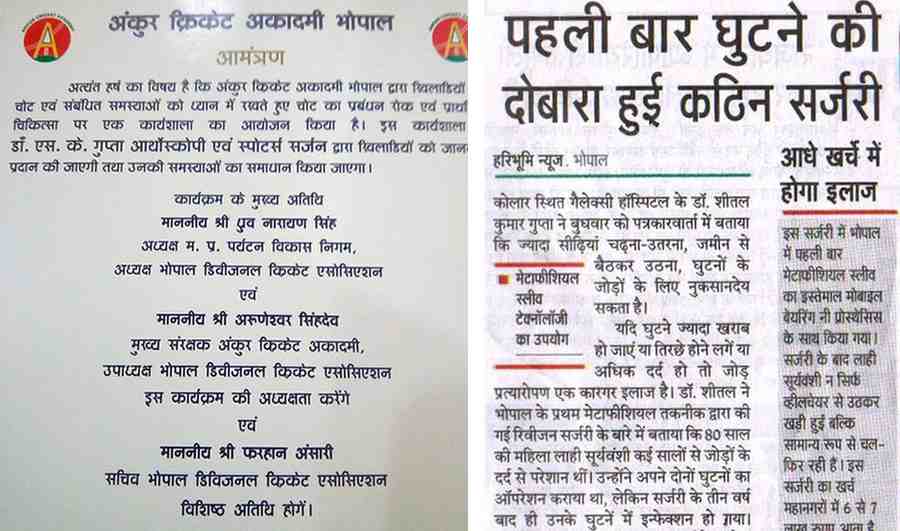 अंकुर क्रिकेट अकादमी भोपाल
आमंत्रण
अत्यंत हर्ष का विषय है कि अंकुर क्रिकेट अकादमी भोपाल द्वारा खिलाडियों
चोट एवं संबंधित समस्याओं को ध्यान में रखते हुए चोट का प्रबंधन रोक एवं
चिकित्सा पर एक कार्यशाला का आयोजन किया है। इस कार्यशाला
डॉ. एस. के. गुप्ता आर्थोस्कोपी एवं स्पोटर्स सर्जन द्वारा खिलाडियों को
प्रदान की जाएगी तथा उनकी समस्याओं का समाधान किया जाएगा।
कार्यक्रम के मुख्य अतिथि
माननीय श्री ध्रुव नारायण सिंह
अध्यक्ष म. प्र. पर्यटन विकास निगम,
अध्यक्ष भोपाल डिवीजनल क्रिकेट एसोसिएशन
एवं
माननीय श्री अरूणेश्वर सिंहदेव
मुख्य संरक्षक अंकुर क्रिकेट अकादमी,
उपाध्यक्ष भोपाल डिवीजनल क्रिकेट एसोसिएशन
इस कार्यक्रम की अध्यक्षता करेंगे
एवं
माननीय श्री फरहान अंसारी
सचिव भोपाल डिविजनल क्रिकेट एसोसिएशन
विशिष्ठ अतिथि होगें।
पहली बार घुटने की
दोबारा हुई कठिन सर्जरी
हरिभूमि न्यूज. भोपाल
कोलार स्थित गैलेक्सी हॉस्पिटल के डॉ. शीतल
कुमार गुप्ता ने बुधवार को पत्रकारवार्ता में बताया
कि ज्यादा सीढ़ियां चढ़ना-उतरना, जमीन से
बैठकर उठना, घुटनों के
जोड़ों के लिए नुकसानदेय
सकता है।
मेटाफीशियल
स्लीव
टेक्नॉलॉजी
का उपयोग
यदि घुटने ज्यादा खराब
हो जाएं या तिरछे होने लगें या
अधिक दर्द हो तो जोड़
प्रत्यारोपण एक कारगर इलाज है। डॉ. शीतल ने
भोपाल के प्रथम मेटाफीशियल तकनीक द्वारा की
गई रिवीजन सर्जरी के बारे में बताया कि 80 साल
की महिला लाही सूर्यवंशी कई सालों से जोड़ों के
दर्द से परेशान थीं। उन्होंने अपने दोनों घुटनों का
ऑपरेशन कराया था, लेकिन सर्जरी के तीन वर्ष
बाद ही उनके घुटने में इन्फेक्शन हो गया।
आधे खर्चे में
होगा इलाज
इस सर्जरी में भोपाल
में पहली बार
मेटाफीशियल स्लीव
का इस्तेमाल मोबाइल
बेयरिंग नी प्रोस्थेसिस
के साथ किया गया।
सर्जरी के बाद लाही
सूर्यवंशी न सिर्फ
व्हीलचेयर से उठकर
खड़ी हुईं बल्कि
सामान्य रूप से चल-
फिर रही हैं। इस
सर्जरी का खर्च
महानगरों में 6 से 7
लाख रुपए आता है